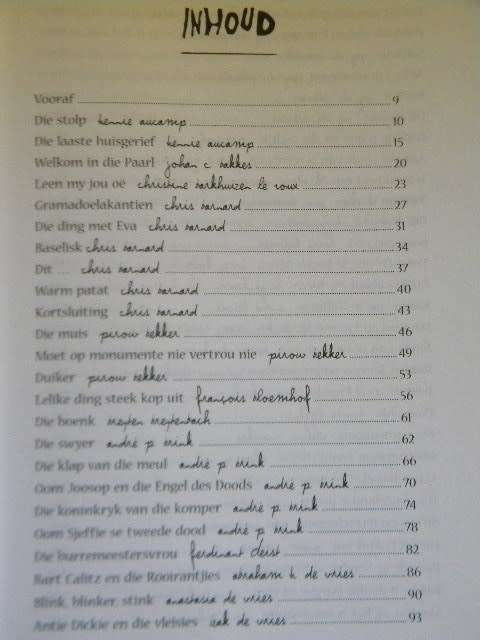 INHOUD
Vooraf 9
Die stolp hennie aucamp 10
Die laaste huisgerief hennie aucamp 15
Welkom in die Paarl johan c bakkes 20
Leen my jou oë christine barkhuizen le roux 23
Gramadoelakantien chris barnard 27
Die ding met Eva chris barnard 31
Baselisk chris barnard 34
Dit ... chris barnard 37
Warm patat chris barnard 40
Kortsluiting chris barnard 43
Die muis pirow bekker 46
Moet op monumente nie vertrou nie pirow bekker 49
Duiker pirow bekker 53
Lelike ding steek kop uit françois bloemhof 56
Die boenk breyten breytenbach 61
Die swyer andré p. brink 62
Die klap van die meul andré p. brink 66
Oom Joosop en die Engel des Doods andré p. brink 70
Die koninkryk van die komper andré p. brink 74
Oom Sjeffie se tweede dood andré p. brink 78
Die burremeestersvrou ferdinant deist 82
Bart Calitz en die Rooirantjies abraham h. de vries 86
Blink, blinker, stink anastasia de vries 90
Antie Dickie en die vleisies izak de vries 93